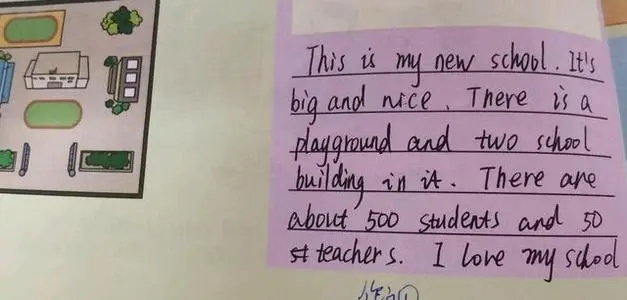 This is my new school. It's
big and nice. There is a
playground and two school
building in it. There are
about 500 students and 50
teachers. I love my school